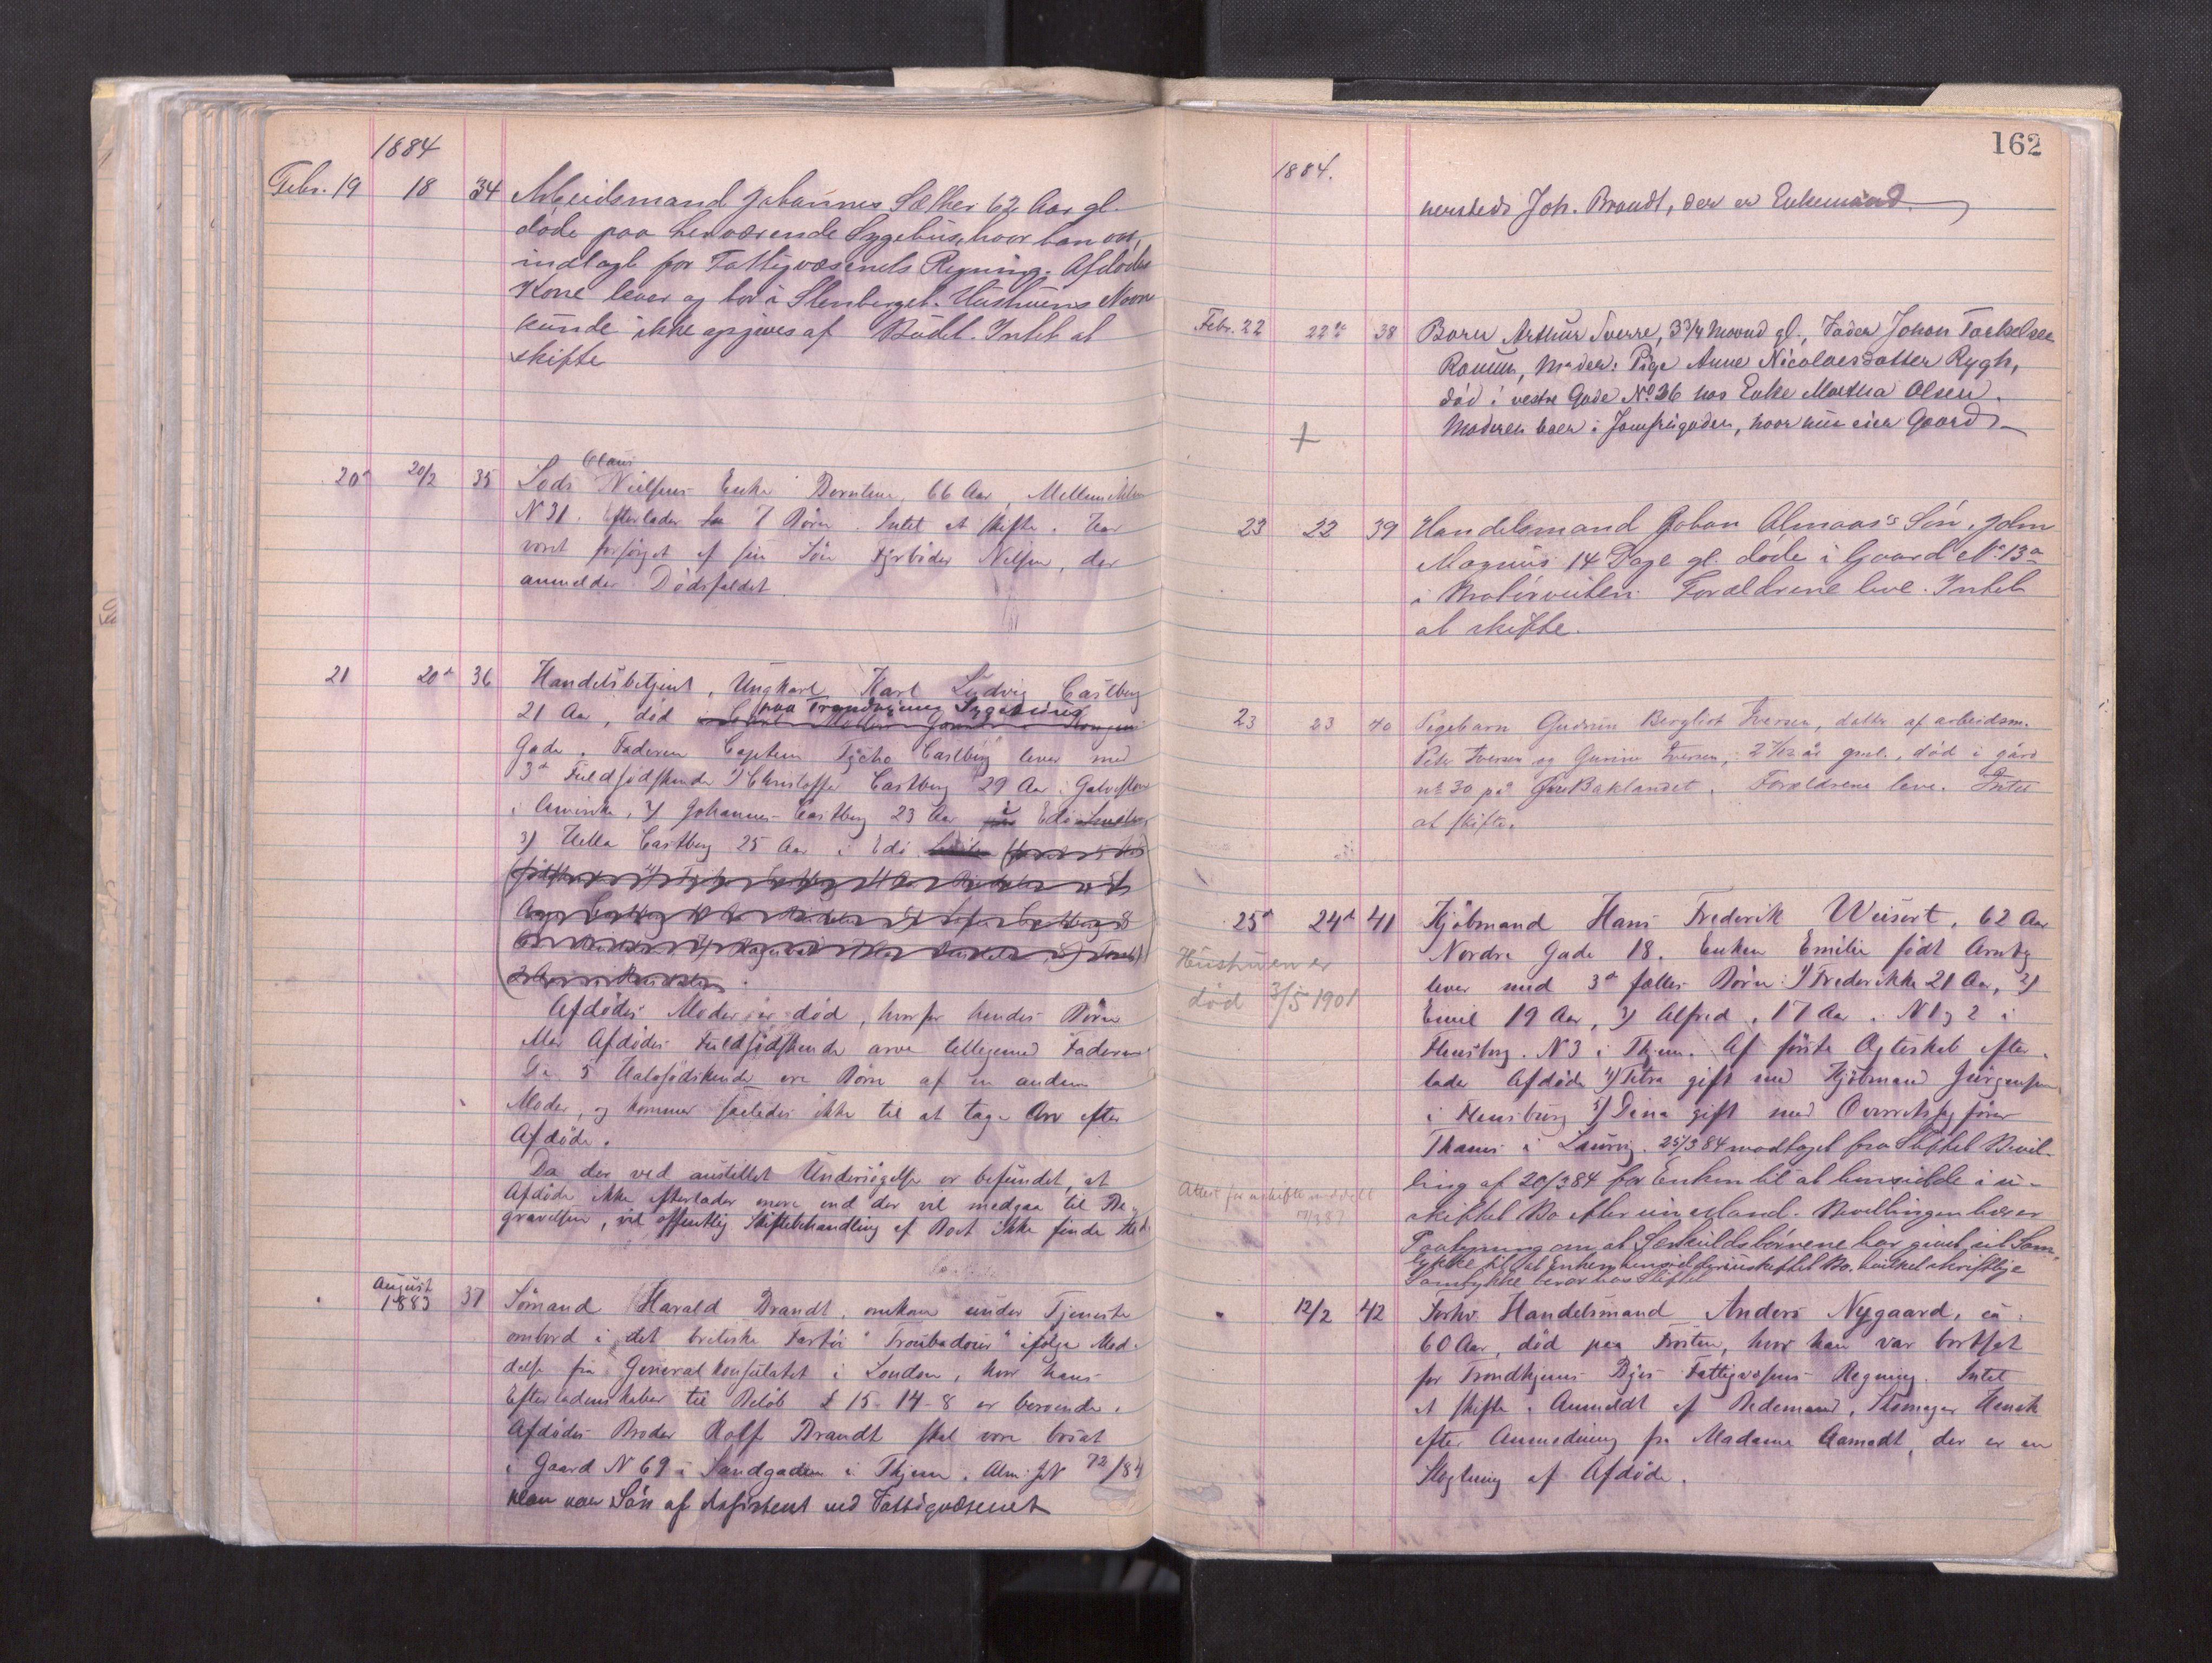 1884
Febr. 19 18 34 Arbeidsmand Johannes Sæther 62 Aar gl.
døde paa herværende Sygehus, hvor han var
indlagt for Fattigvæsenets Regning. Afdødes
Kone lever og bor i Stenberget. Hustruens Navn
kunde ikke opgives af Budet. Intet at
skifte
20d 20/2 35 Lods Claus Nielsens Enke Berntine, 66 Aar, Mellem
N 31. Efterlader 7 Børn. Intet at skifte. Har
været forsørget af sin Søn Fyrbøder Nilsen, der
anmelder Dødsfaldet.
21 20d 36 Handelsbetjent, Ungkarl Karl Ludvig Castberg
21 Aar, død paa Trondhjems Sygehus
Gade. Faderen Captein Tycho Castberg lever med
3d Fuldsødskende 1) Christoffer Castberg 29 Aar i Galveston
i Amerika, 2) Johannes Castberg 23 Aar i Edø
3) Hella Castberg 25 Aar i Edø
Afdødes Moder er død, hvorfor hendes Børn
Afdødes Fuldsødskende arver tilligemed Faderen.
De 5 Halvsødskende ere Børn af en anden
Moder, og kommer saaledes ikke til at tage Arv efter
Afdøde.
Da der ved anstillet Undersøgelse er befundet, at
Afdøde ikke efterlader mere end der vil medgaa til Be-
gravelsen, vil offentlig Skiftebehandling af Boet ikke finde Sted.
August
1883 37 Sømand Harald Brandt, omkom under Tjeneste
ombord i det britiske Fartøi "Troubadour" ifølge Med-
delse fra Generalkonsulatet i London, hvor hans
Efterladenskaber til Beløb £ 15-14-8 er beroende.
Afdødes Broder Rolf Brandt skal være bosat
i Gaard N 69 i Sandgaden i Thjem. Alm. JN 72/84
Han var Søn af Assistent ved Fattigvæsenet
162
1884.
hersteds Joh. Brandt, der er Enkemand.
Febr. 22 22de 38 Barn Arthur Sverre, 3 3/4 Maaned gl., Fader Johan Torkelsen
Ranum, Moder: Pige Anne Nicolaesdatter Rygh,
død i vestre Gade No. 36 hos Enke Martha Olsen.
Moderen boer i Jomfrugaden, hvor hun eier Gaard
+
23 22 39 Handelsmand Johan Almaas's Søn, John
Magnus 14 Dage gl. døde i Gaard No. 13a
i Bratørveiten. Forældrene leve. Intet
at skifte.
23 23 40 Pigebarn Gudrun Bergliot Iversen, datter af arbeidsm.
Peter Iversen og Gurine Iversen, 2 7/12 år gml., død i gård
nr 30 på Øvre Baklandet. Forældrene leve. Intet
at skifte.
25d 24d 41 Kjøbmand Hans Frederik Weisert, 62 Aar
Nordre Gade 18. Enken Emilie født Arntz
lever med 3d fælles Børn: 1) Frederikke 21 Aar, 2)
Emil 19 Aar, 3) Alfred, 17 Aar. N 1 og 2 i
Flensborg. N 3 i Thjem. Af første Ægteskab efter-
lader Afdøde 4) Petra gift med Kjøbmand Jürgensen
i Flensburg 5) Dina gift med Overretssagfører
Thaues i Laurvig. 25/3 84 modtaget fra Stiftet Bevil-
ling af 20/3 84 for Enken til at hensidde i u-
skiftet Bo efter sin Mand. Bevillingen bærer
Paategning om at Særkuldsbørnene har givet sit Sam-
tykke til at Enken hensidder i uskiftet Bo, hvilket skriftlige
Samtykke beror hos Stiftet
Hustruen er
død 3/5 1901
Attest for uskifte meddelt
12/2 42 Forhv. Handelsmand Anders Nygaard, ca.
60 Aar, død paa Frosten, hvor han var bortsat
for Trondhjems Byes Fattigvæsens Regning. Intet
at skifte. Anmeldt af Bedemand, Skomager Henrik
efter Anmodning fra Madame Aamodt, der er en
Slægtning af Afdøde.